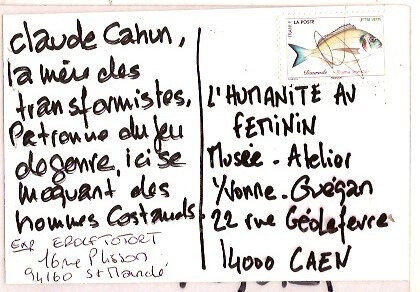 Claude Cahun,
la mère des
transformistes.
Patronne du jeu
de genre, ici se
moquant des
hommes Costauds.
Exp EROLF TOTORT
16 rue Plisson
94160 St Mandé
FRANCE LA POSTE
Daurade
L'HUMANITÉ AU
FEMININ
Musée-Atelier
Yvonne-Guégan
22 rue Géolefevre
14000 CAEN